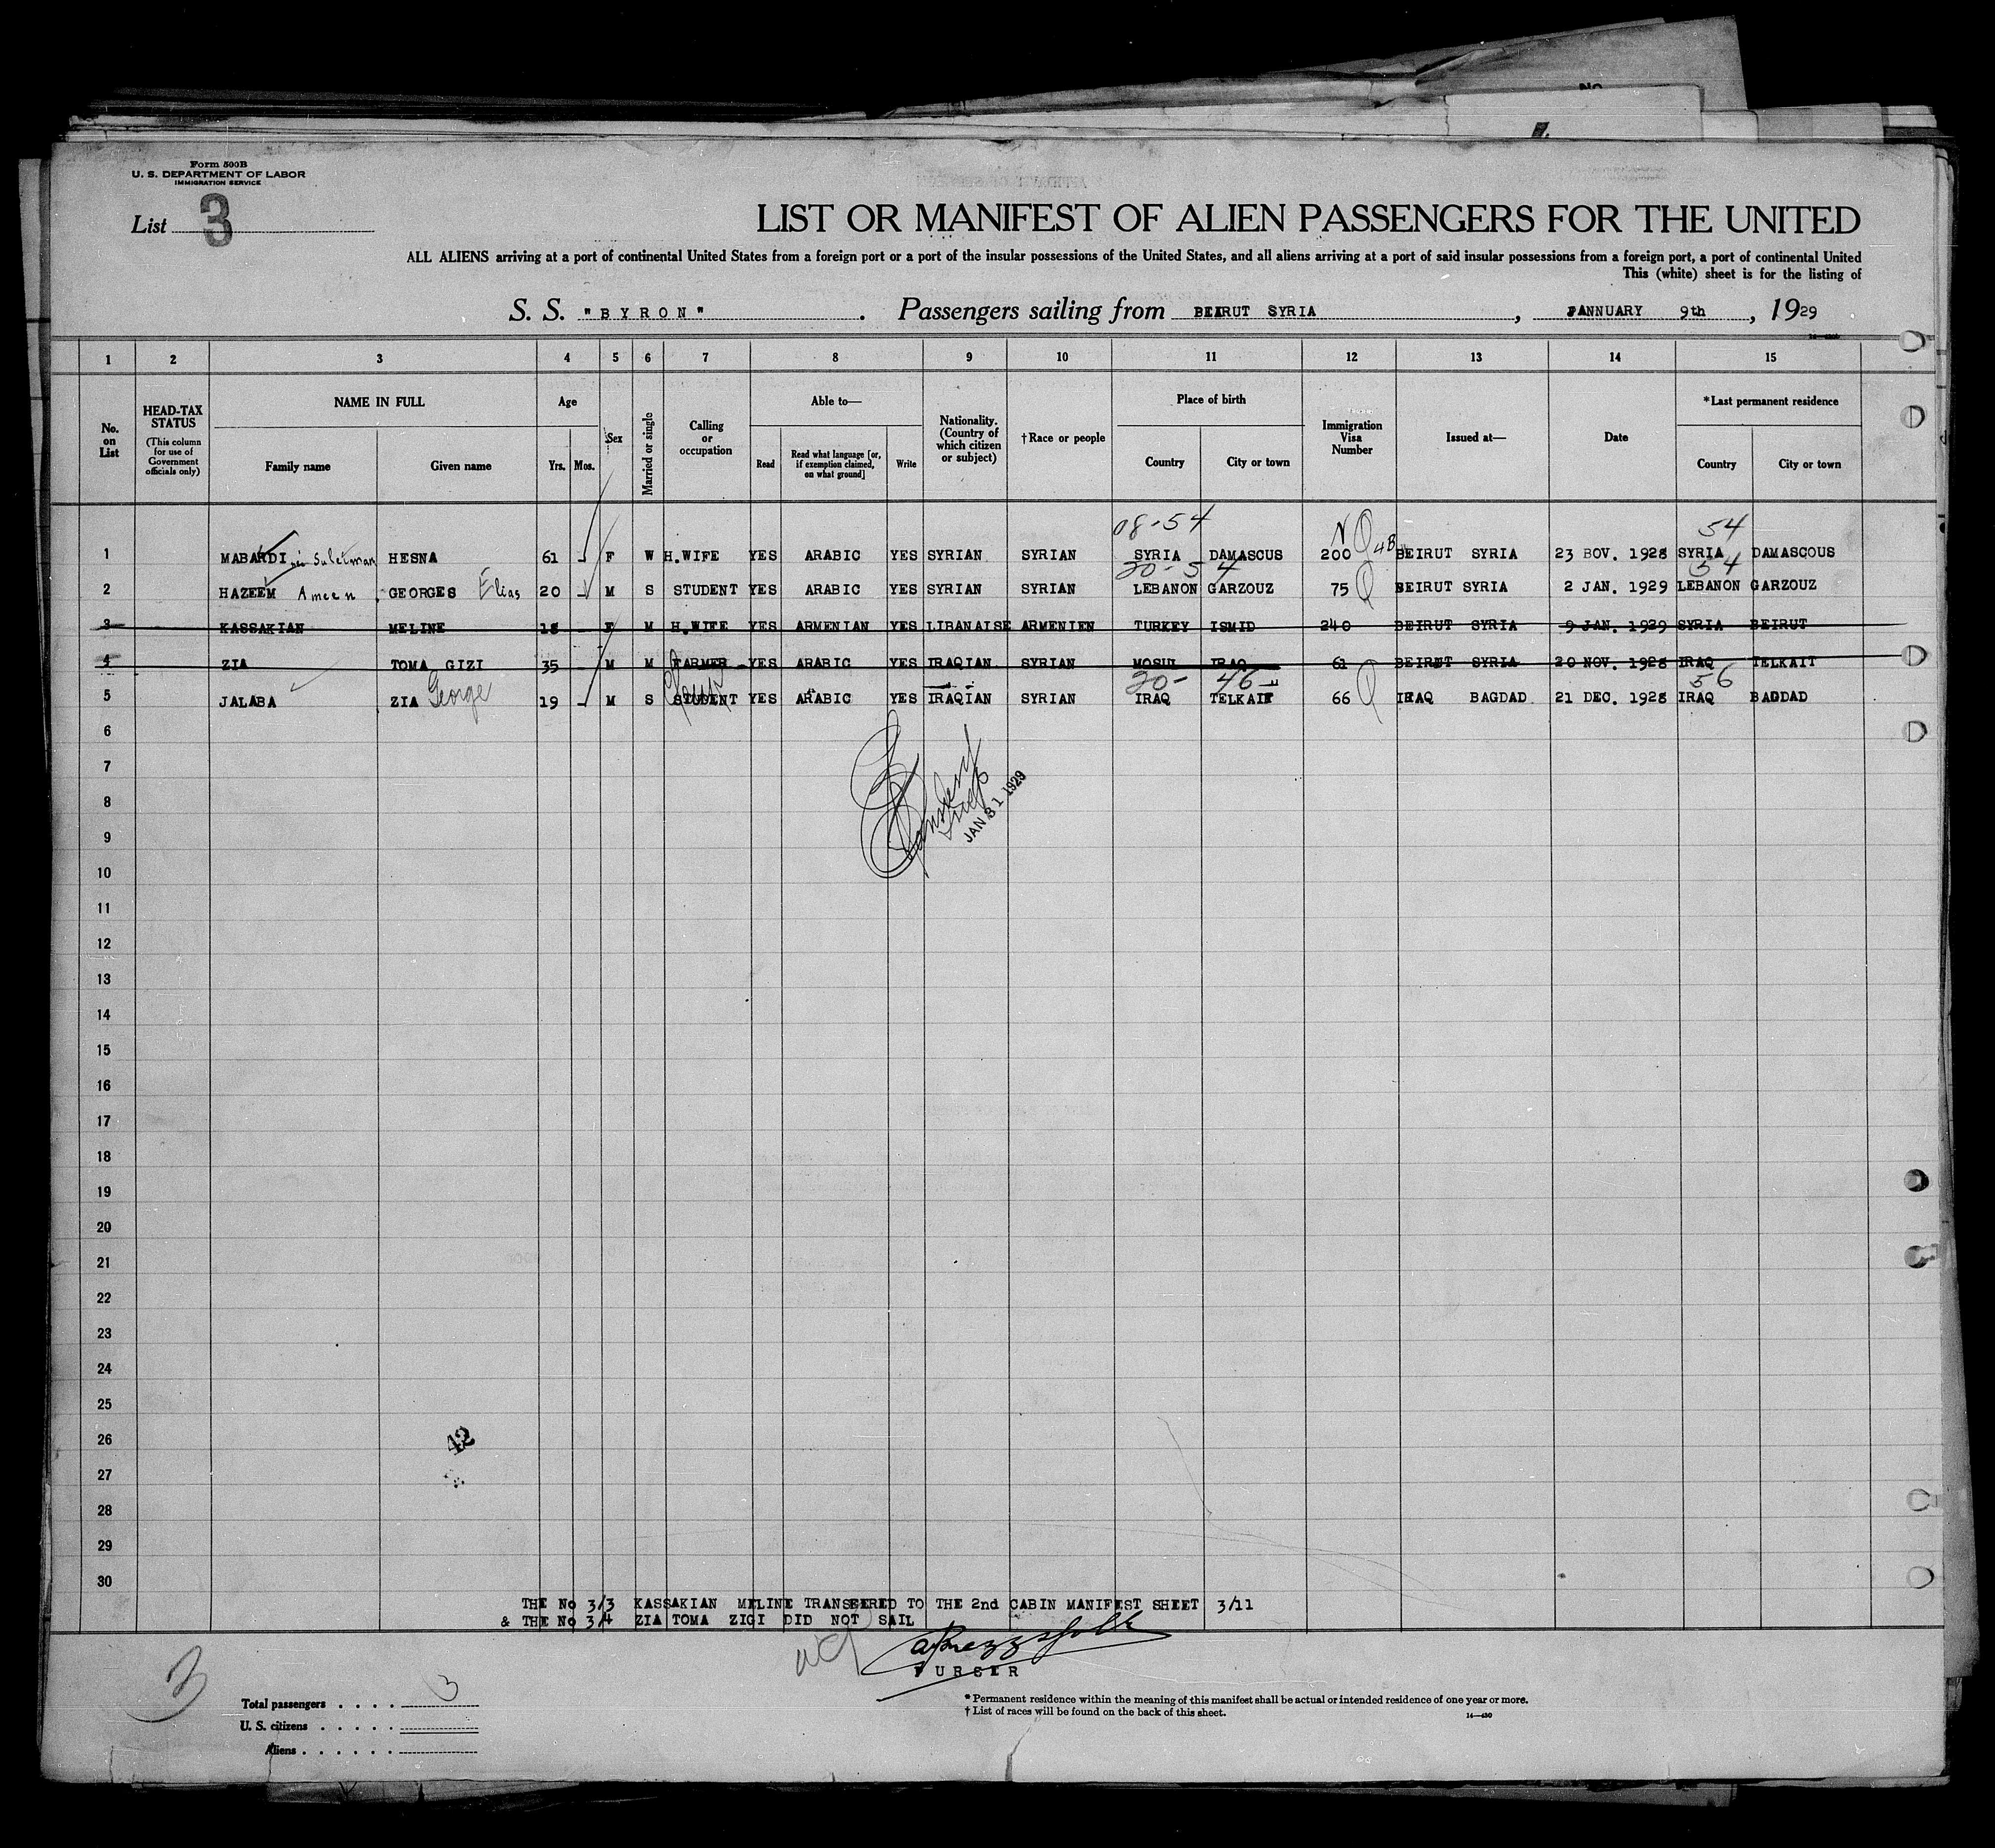 Form 500B
U. S. DEPARTMENT OF LABOR
IMMIGRATION SERVICE
List 3
LIST OR MANIFEST OF ALIEN PASSENGERS FOR THE UNITED
ALL ALIENS arriving at a port of continental United States from a foreign port or a port of the insular possessions of the United States, and all aliens arriving at a port of said insular possessions from a foreign port, a port of continental United
This (white) sheet is for the listing of
S. S. "BYRON" . Passengers sailing from BEIRUT SYRIA , JANNUARY 9th , 1929
1 2 3 4 5 6 7 8 9 10 11 12 13 14 15
No. on List
HEAD-TAX STATUS
(This column for use of Government officials only)
NAME IN FULL
Family name Given name
Age
Yrs. Mos.
Sex
Married or single
Calling or occupation
Able to—
Read
Read what language [or, if exemption claimed, on what ground]
Write
Nationality. (Country of which citizen or subject)
†Race or people
Place of birth
Country City or town
Immigration Visa Number
Issued at—
Date
*Last permanent residence
Country City or town
08-54 NQ 54
1 MABARDI née Suleiman HESNA 61 F W H.WIFE YES ARABIC YES SYRIAN SYRIAN SYRIA DAMASCUS 200 4B BEIRUT SYRIA 23 BOV. 1928 SYRIA DAMASCOUS
20-54 54
2 HAZEEM Ameen GEORGES Elias 20 M S STUDENT YES ARABIC YES SYRIAN SYRIAN LEBANON GARZOUZ 75 Q BEIRUT SYRIA 2 JAN. 1929 LEBANON GARZOUZ
3 KASSAKIAN MELINE 18 F M H.WIFE YES ARMENIAN YES LIBANAISE ARMENIEN TURKEY ISMID 240 BEIRUT SYRIA 9 JAN. 1929 SYRIA BEIRUT
4 ZIA TOMA GIZI 35 M M FARMER YES ARABIC YES IRAQIAN SYRIAN MOSUL IRAQ 61 BEIRUT SYRIA 20 NOV. 1928 IRAQ TELKAIT
20- 46 56
5 JALABA ZIA George 19 M S STUDENT YES ARABIC YES IRAQIAN SYRIAN IRAQ TELKAIF 66 Q IRAQ BAGDAD 21 DEC. 1928 IRAQ BAGDAD
6
7
8
JAN 31 1929
9
10
11
12
13
14
15
16
17
18
19
20
21
22
23
24
25
26
42
27
28
29
30
THE No 3/3 KASSAKIAN MELINE TRANSFERED TO THE 2nd CABIN MANIFEST SHEET 3/11
& THE No 3/4 ZIA TOMA ZIGI DID NOT SAIL
PURSER
3
Total passengers . . . . 3
U. S. citizens . . . . .
Aliens . . . . . .
* Permanent residence within the meaning of this manifest shall be actual or intended residence of one year or more.
† List of races will be found on the back of this sheet.
14—430